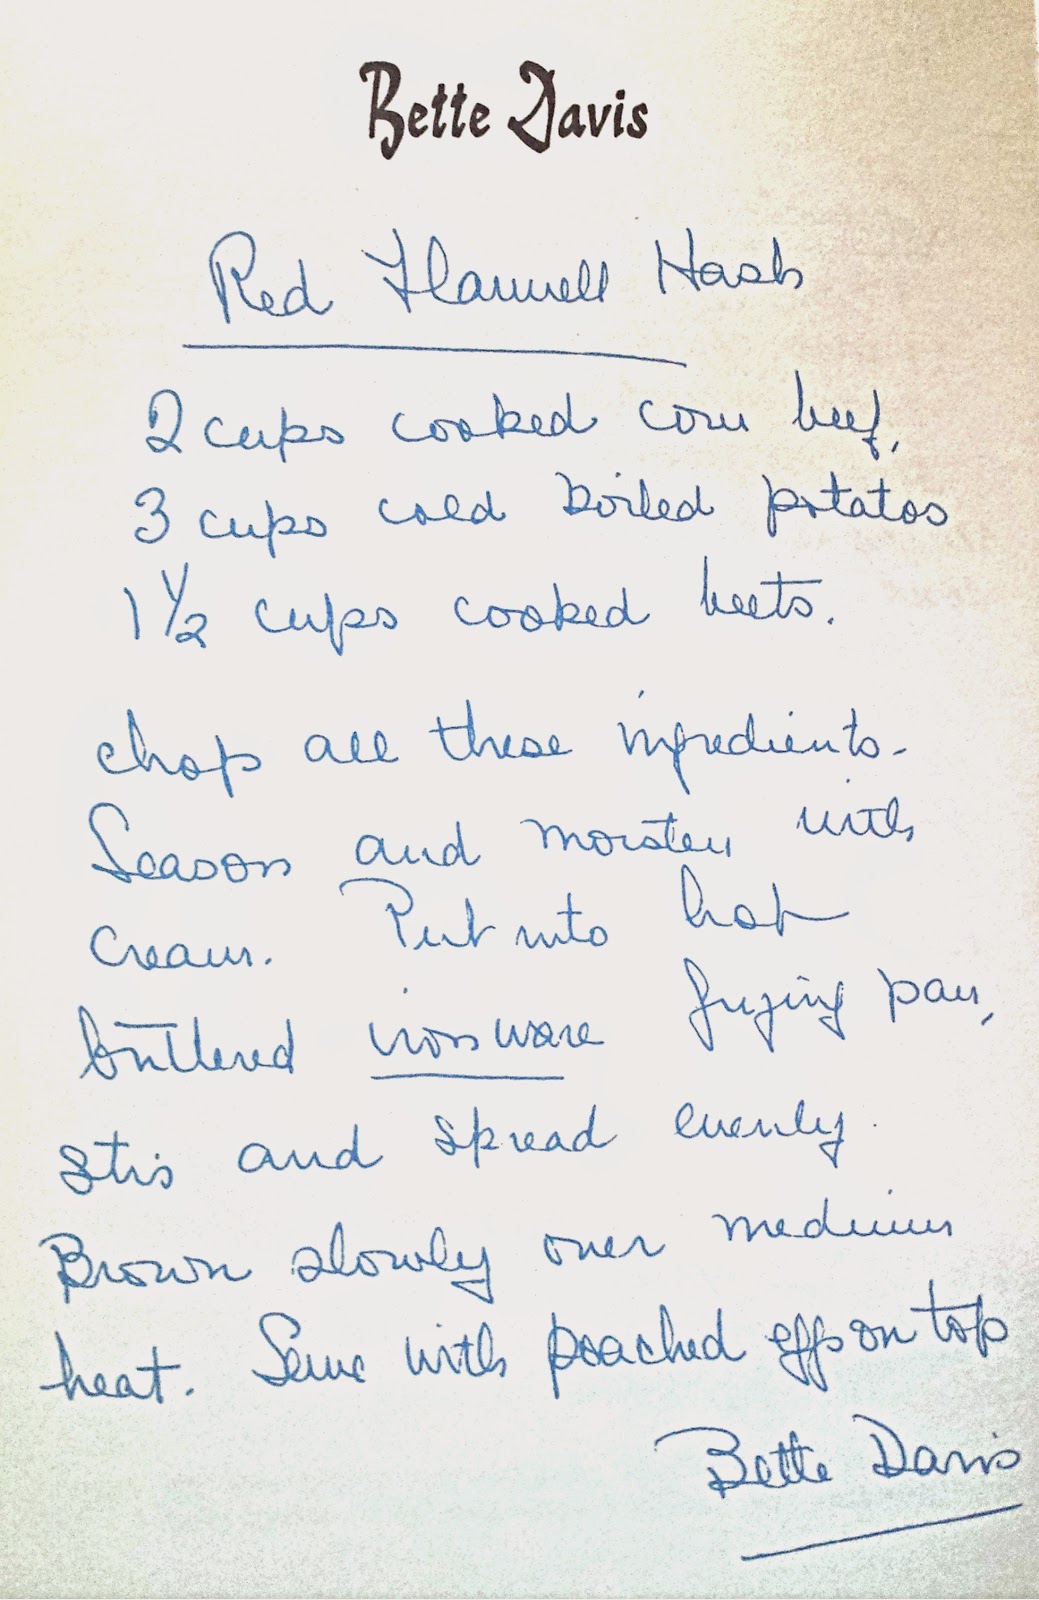 Bette Davis
Red Flannell Hash
2 cups cooked corn beef,
3 cups cold boiled potatos
1 1/2 cups cooked beets.
chop all these ingredients.
Season and moisten with
cream. Put into hot
buttered ironware frying pan,
stir and spread evenly.
Brown slowly over medium
heat. Serve with poached eggs on top
Bette Davis